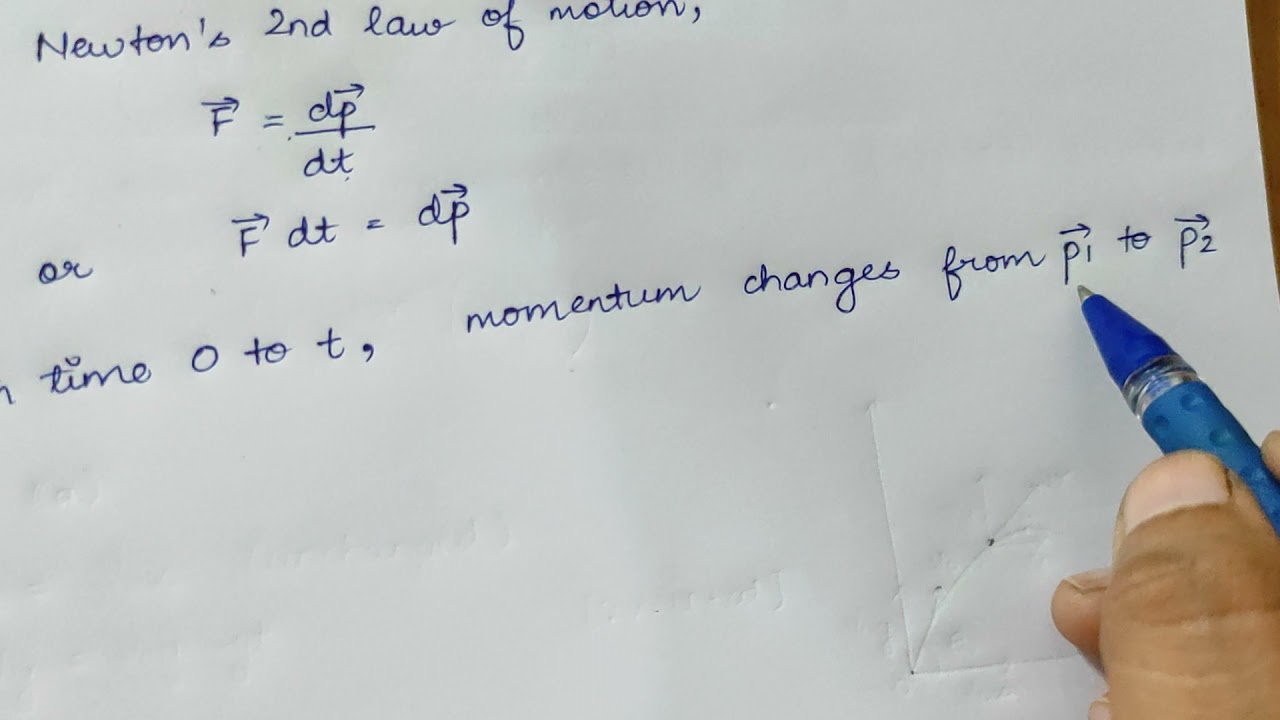 Newton's 2nd law of motion,
F⃗ = dp⃗/dt
or F⃗ dt = dp⃗
time 0 to t, momentum changes from p⃗1 to p⃗2